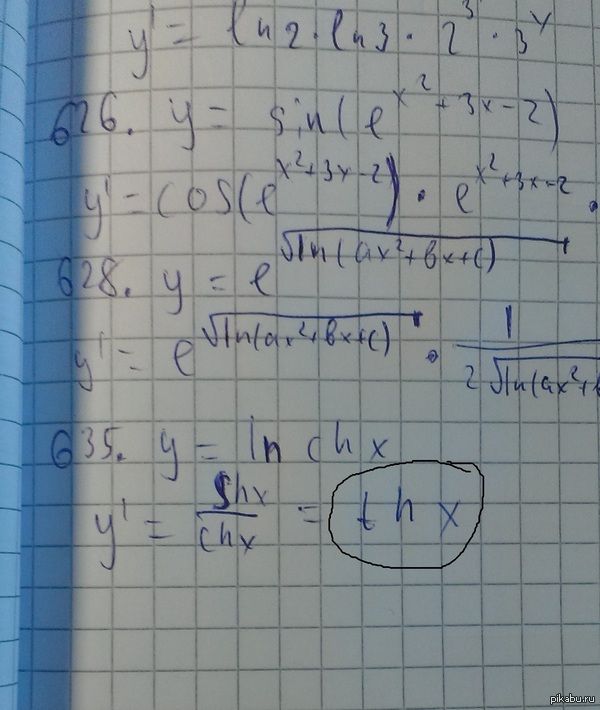 y' = ln2·ln3·2^3^y·3^y
626. y = sin(e^{x²+3x-2})
y' = cos(e^{x²+3x-2})·e^{x²+3x-2}·
628. y = e^{√ln(ax²+bx+c)}
y' = e^{√ln(ax²+bx+c)}·1/(2√ln(ax²+b
635. y = ln ch x
y' = shx/chx = th x
pikabu.ru